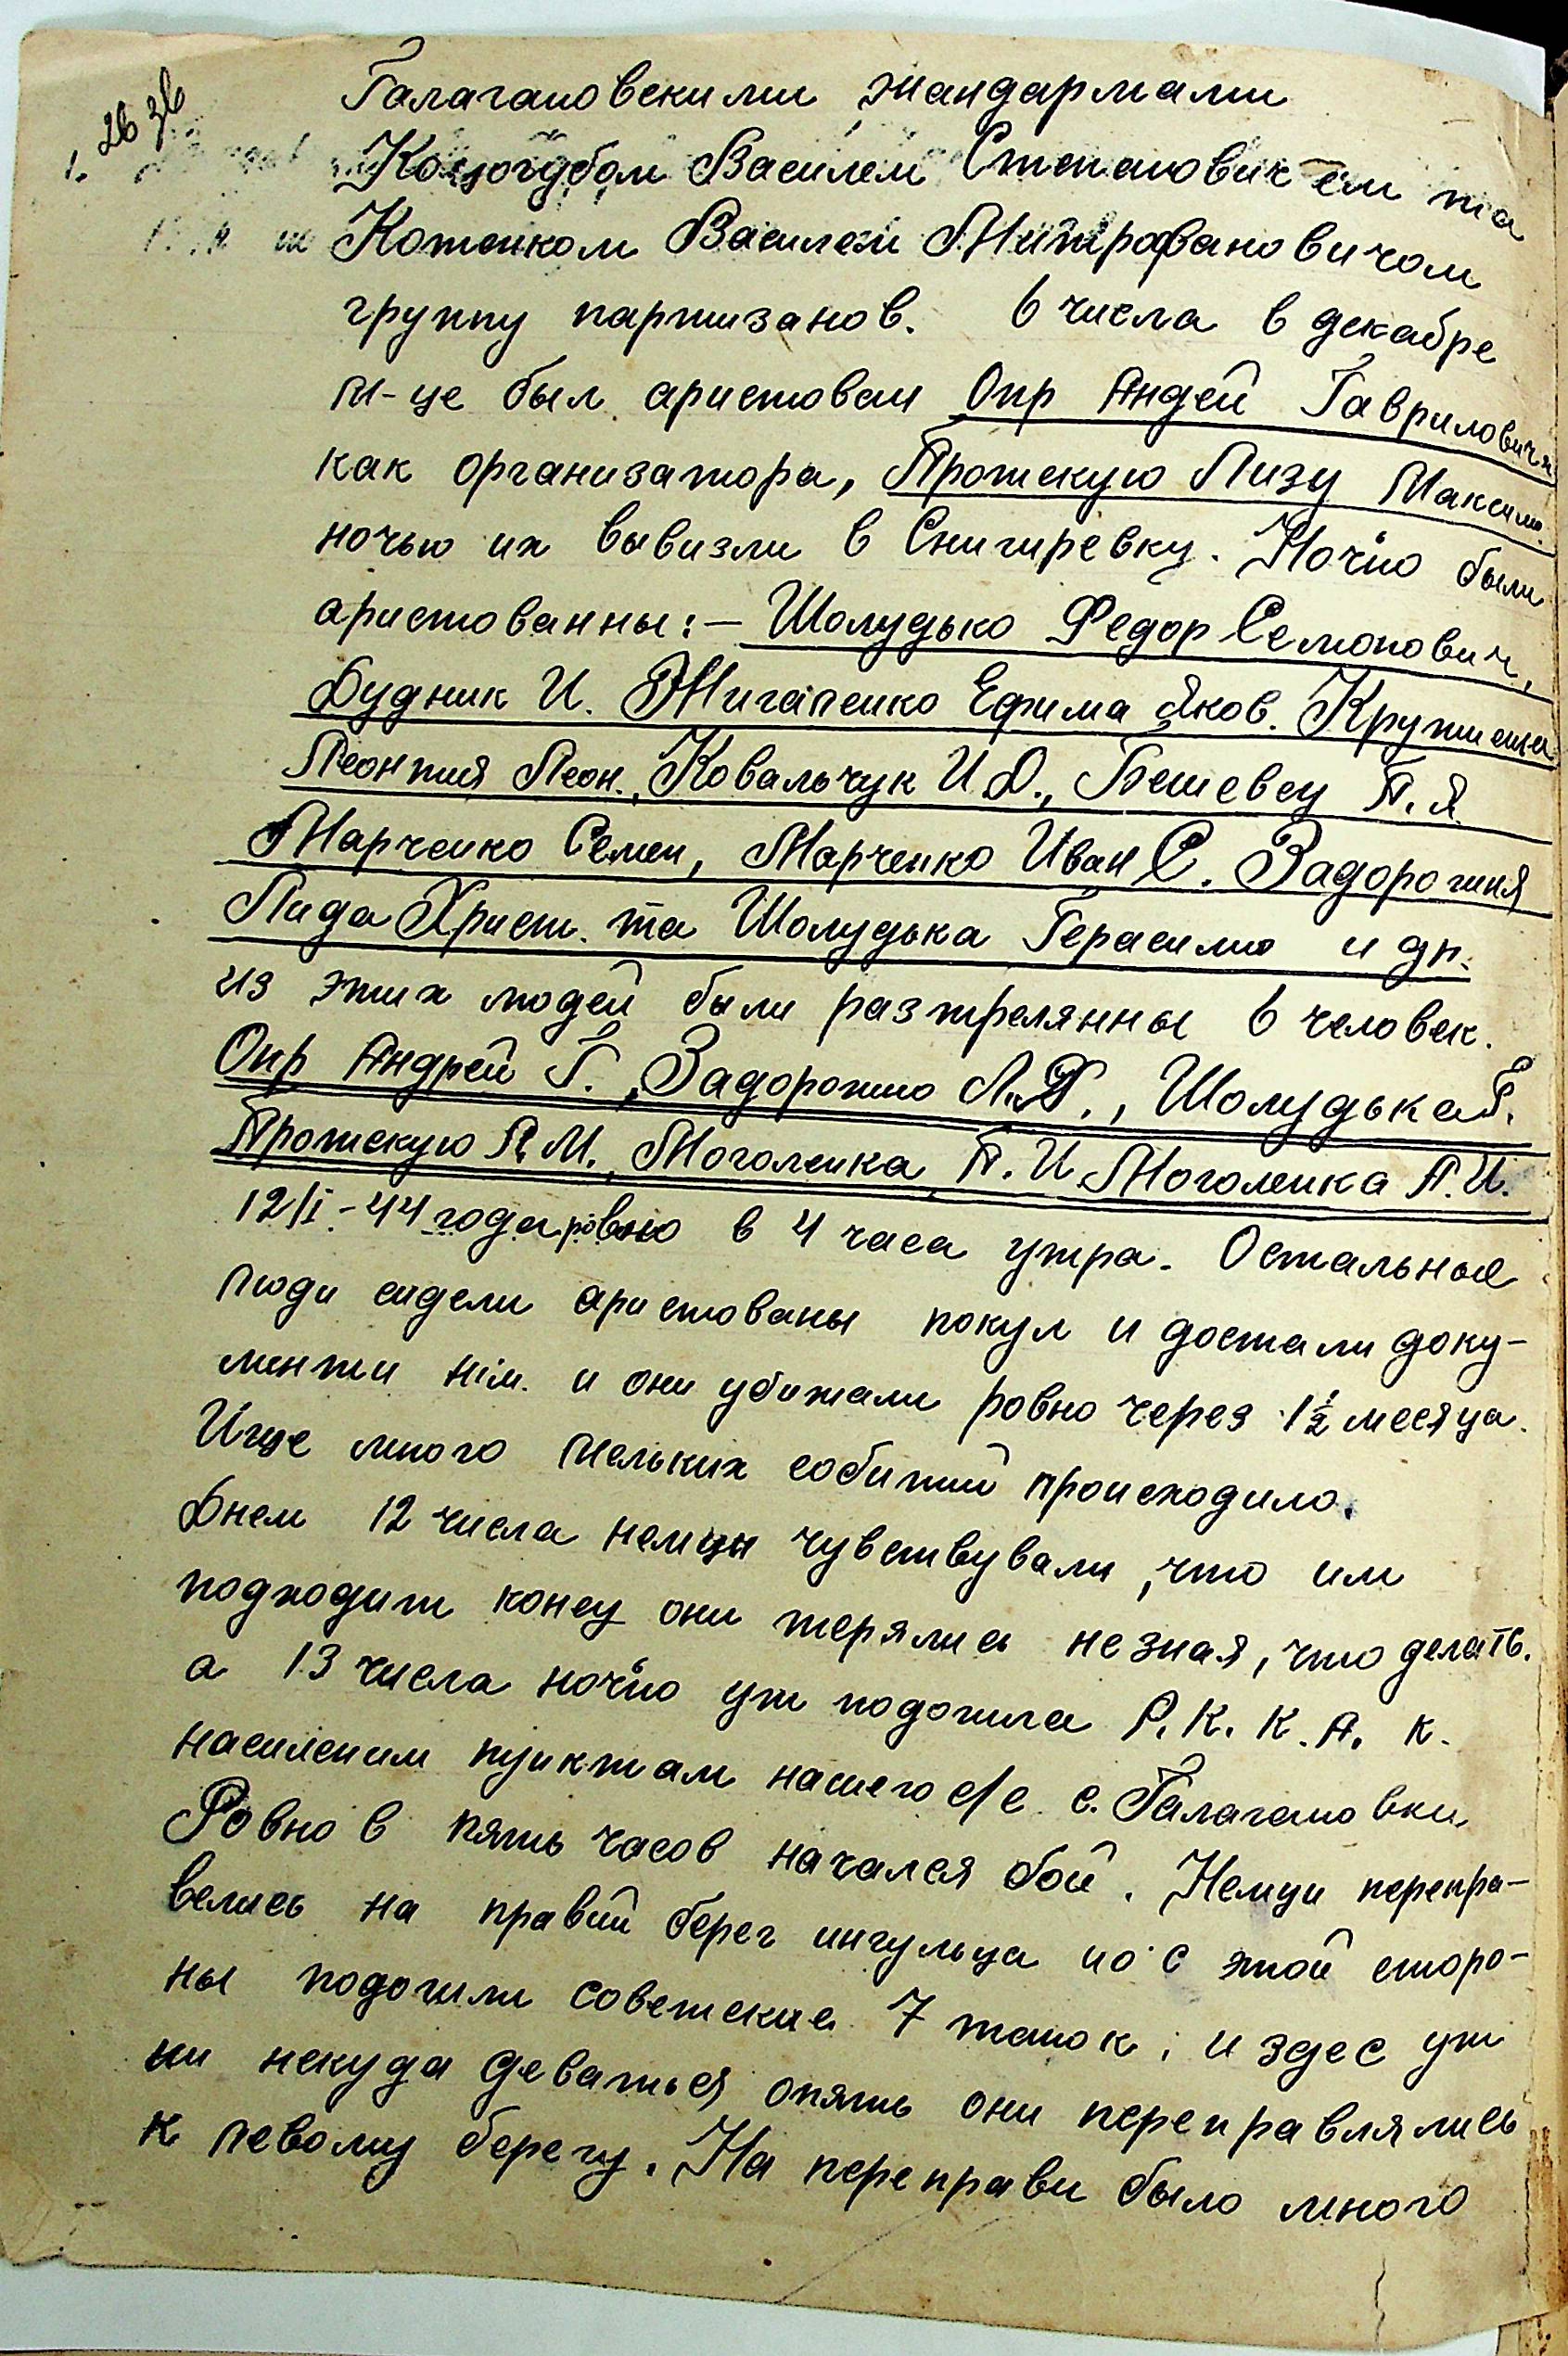 26 зв
1.
Галагановскими жандармами
Козогубом Василем Степановичем та
Котенком Василем Митрофановичом
группу партизанов. 6 числа в декабре
м-це был аристован Опр Андей Гавриловича
как организатора, Протскую Лизу Максим.
ночью их вывизли в Снигиревку. Ночйо были
аристованны:- Шолудько Федор Семонович,
Будник И. Жигаленко Ефима Яков.
Леонтия Леон., Ковальчук И.Д., Бешевец П.Я.
Марченко Семен, Марченко Иван С. Задорожня
Лида Христ. та Шолудька Герасимо и др.
из этих людей были разтрелянны 6 человек.
Опр Андрей Г., Задорожно Л.Х., Шолудька Г.
Протскую Л.М., Моголенка П.И Моголенка А.И.
12/I-44 года ровно в 4 часа утра. Остальные
люди сидели аристованы покул и достали доку-
менти нім. и они убижали ровно через 1½ месяца.
Ище много мельких собитий происходило.
Днем 12 числа немцы чувствували, что им
подходит конец они терялись незная, что делать.
а 13 числа ночйо уж подошла Р.К.К.А. к.
насиленим пунктам нашего с/с с. Галагановки
Ровно в пять часов начался бой. Немци перепра-
велись на правий берег ингульца но с этой сторо-
ны подошли советские 7 танок, и здес уж
им некуда деваться опять они переправлялись
к левому берегу. На переправи было много